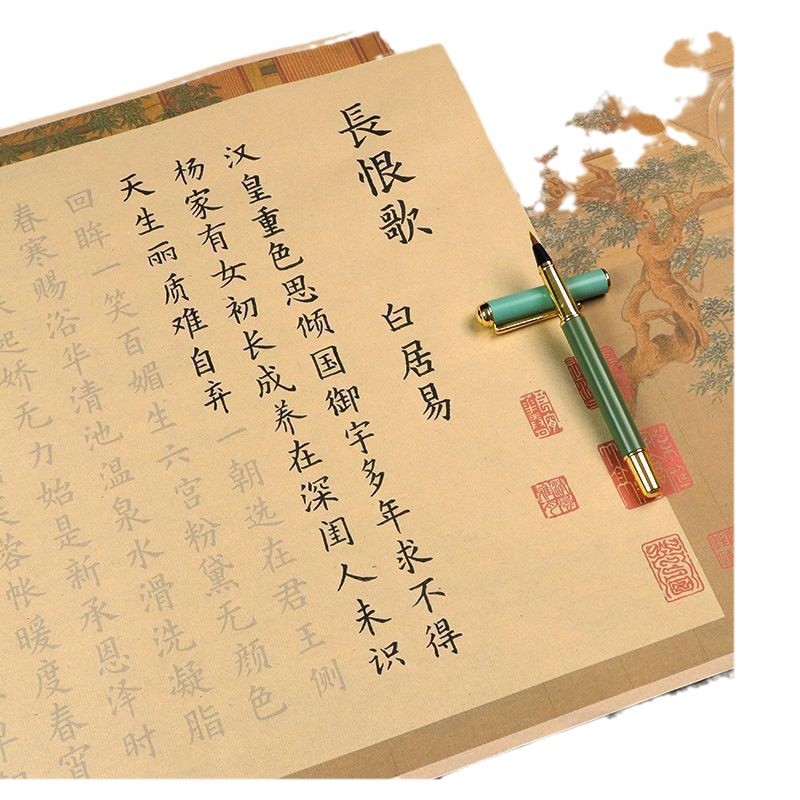 長恨歌 白居易
汉皇重色思倾国御宇多年求不得
杨家有女初长成养在深闺人未识
天生丽质难自弃一朝选在君王侧
回眸一笑百媚生六宫粉黛无颜色
春寒赐浴华清池温泉水滑洗凝脂
起娇无力始是新承恩泽时
蓉帐暖度春宵